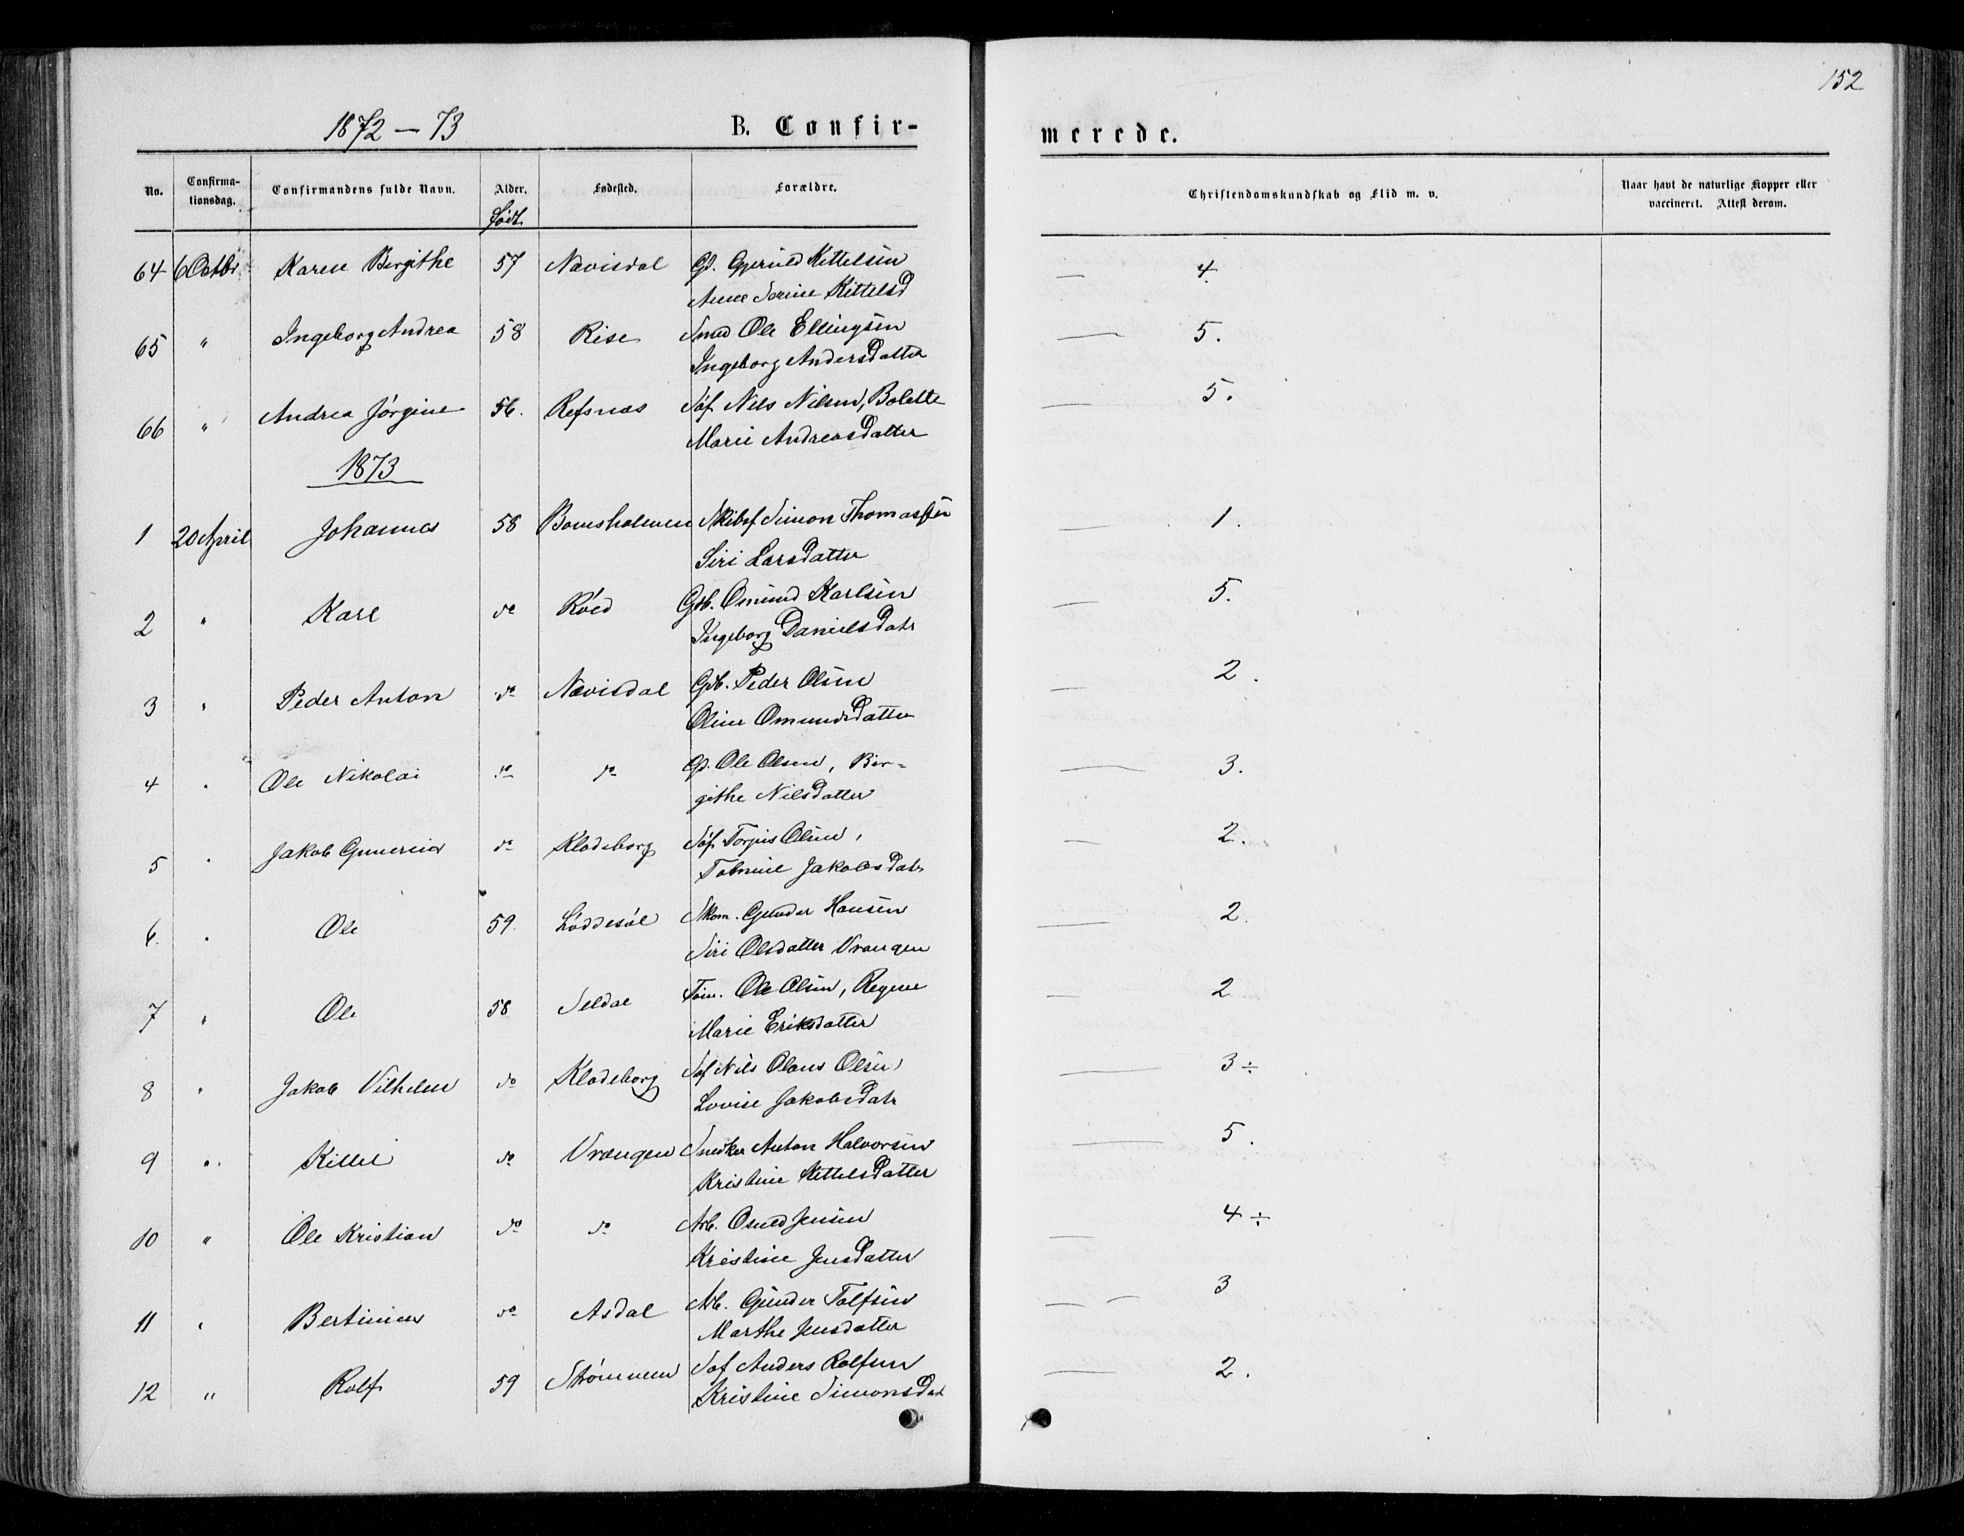 152
1872 – 73
B. Confir-
merede.
No.
Confirma-
tionsdag.
Confirmandens fulde Navn.
Alder.
født
Fødested.
Forældre.
Christendomskundskab og Flid m. v.
Naar havt de naturlige Kopper eller
vaccineret. Attest derom.
64 6 Octbr. Karen Birgithe 57 Nævisdal Gd. Gjeruld Kittelsen — 4.
Anne Serine Kittelsd
65 " Ingeborg Andrea 58 Rise Smed Ole Ellingsen — 5.
Ingeborg Andersdatter
66 " Andrea Jørgine 56. Refsnæs Søf. Nils Nilsen, Bolette — 5.
Marie Andreasdatter
1873
1 20 April Johannes 58 Bomsholmen Skibsf Simon Thomassen — 1.
Siri Larsdatter
2 " Karl do Røed Gdb. Omund Karlsen — 5.
Ingeborg Danielsdatr
3 " Peder Anton do Nævisdal Gdb. Peder Olsen — 2.
Oline Omundsdatter
4 " Ole Nikolai do do Gd. Ole Olsen, Bir- — 3.
githe Nilsdatter
5 " Jakob Gunerius do Klodeborg Søf. Torjus Olsen, — 2.
Tomine Jakobsdatr
6. " Ole 59. Løddesøl Skom. Gunder Hansen — 2.
Siri Olsdatter Vrangen
7 " Ole 58 Seldal Tøm. Ole Olsen, Regine — 2
Marie Eriksdatter
8 " Jakob Vilhelm do Klodeborg Søf Nils Olaus Olsen — 3 ÷
Lovise Jakobsdatr
9 " Kittel do Vrængen Snedker Anton Halvorsen — 5.
Kristine Kittelsdatter
10 " Ole Kristian do do Arb. Osuld Jensen — 4 ÷
Kristine Jensdatter
11 " Bertinius do Asdal Arb. Gunder Tolfsen — 3
Marthe Jensdatter
12 " Rolf 59 Strømmen Søf Anders Rolfsen — 2.
Kristine Simonsdat